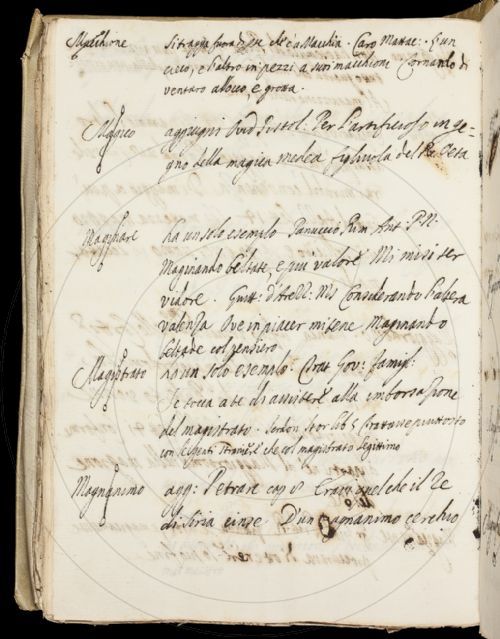 Macchione si tragga fuora di se, ch'è a Macchia. Caro Mattac: E un
cieco, e l'altro in pezzi a suoi macchione Cornando di
ventaro alloco, e grotta.
Magico aggiugni Ovid Pistol: Per l'artificioso inge-
gno della magica medea figliuola del Re Oeta
Maginare ha un solo esempio Panuccio Rim Ant: P.N.
Maginando beltate, e qui valore Mi misi ser
vidore. Guitt: d'Arezz: MS Considerando l'altera
valenza Ove in piacer mi tene, Maginando
beltade col pensiero
Magistrato ha un solo esempio: Trat Gov: famigl:
Se tocca a te di assistere alla imborsazione
del magistrato. Serdon Stor lib 5 piuttosto
con che col magistrato legittimo
Magnanimo agg: Petrarc cap 8 Eravi quel che il Re
di Siria cinse D'un magnanimo cerchio